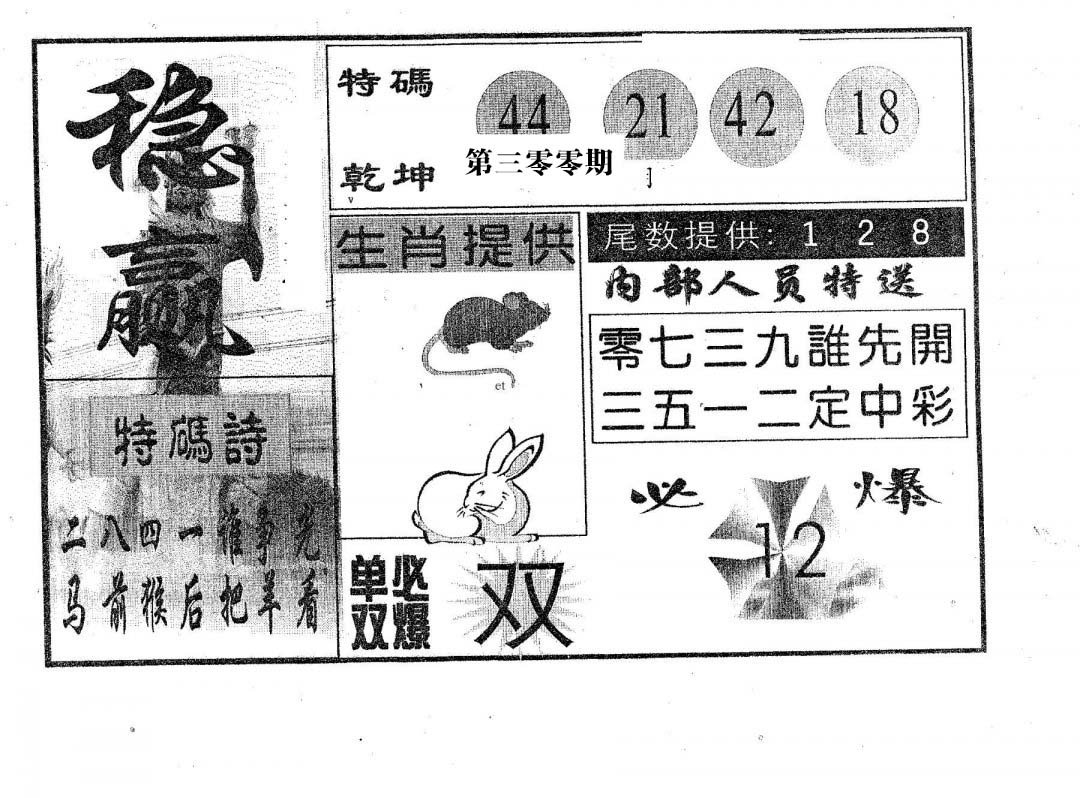 稳
赢
特碼
44 21 42 18
第三零零期
乾坤
生肖提供
尾数提供: 1 2 8
内部人员特送
零七三九誰先開
三五一二定中彩
特碼詩
二八四一谁争先
马前猴后把羊看
et
必爆
12
单双
必爆
双